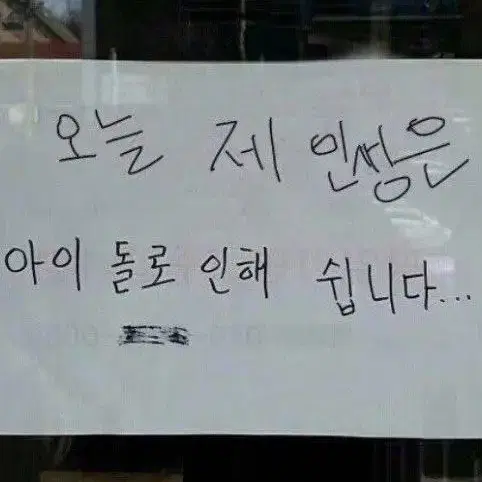 오늘 제 인성은
아이 돌로 인해 쉽니다...